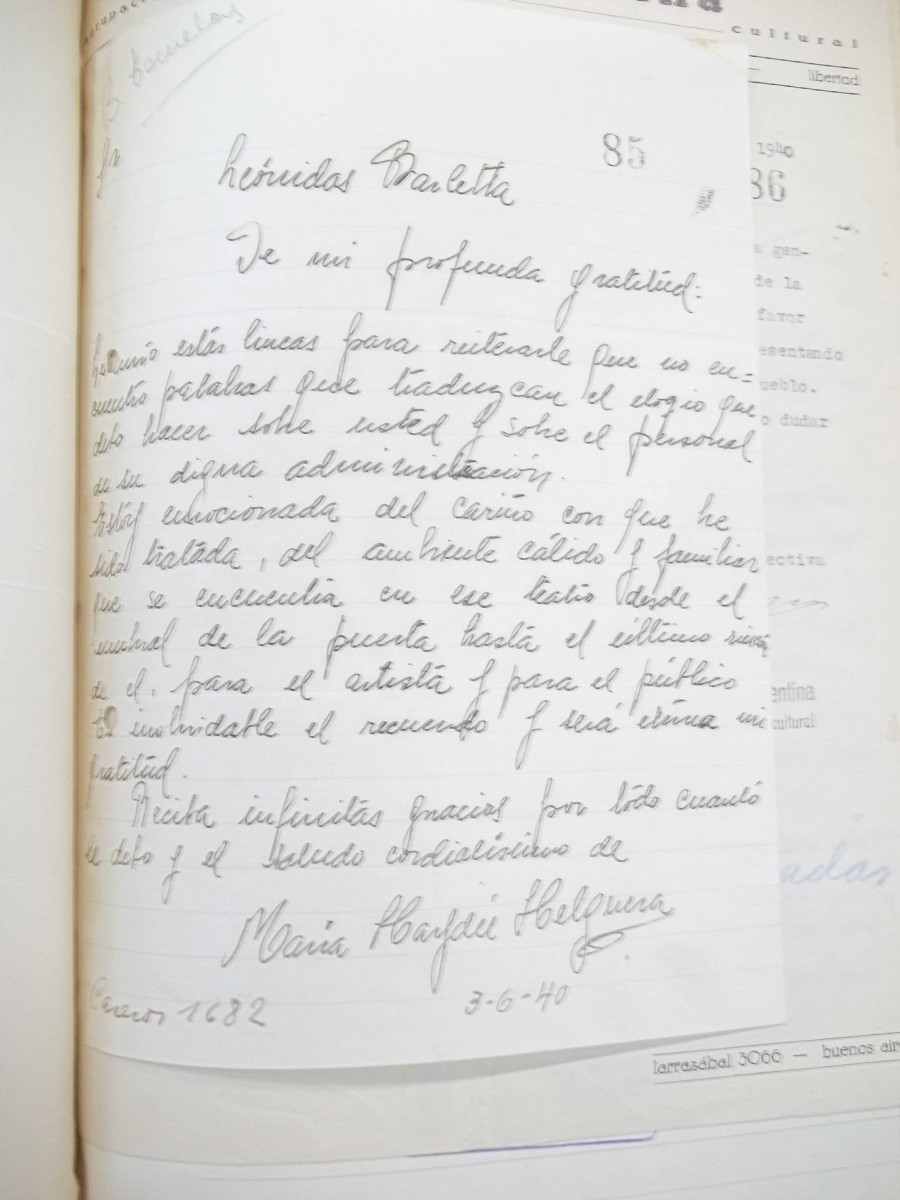 cultural
libertad
Escuelas
85
1940
86
Leónidas Barletta
De mi profunda gratitud:
estás lineas para reiterarle que no en=
cuentro palabras que traduzcan el elogio que
debo hacer sobre usted y sobre el personal
de su digna administración.
Estóy emocionada del cariño con que he
sido tratada, del ambiente cálido y familiar
que se encuentra en ese teatro desde el
umbral de la puerta hasta el último rincón
de el, para el artista y para el público
Es inolvidable el recuerdo y será eterna mi
gratitud.
Reciba infinitas gracias por todo cuanto
le debo y el saludo cordialísimo de
Maria Haydée Helguera
Caseros 1682
3-6-40
gen-
de la
favor
esentando
ueblo.
o dudar
ectiva
entina
cultural
adas
larrazábal 3066 — buenos air